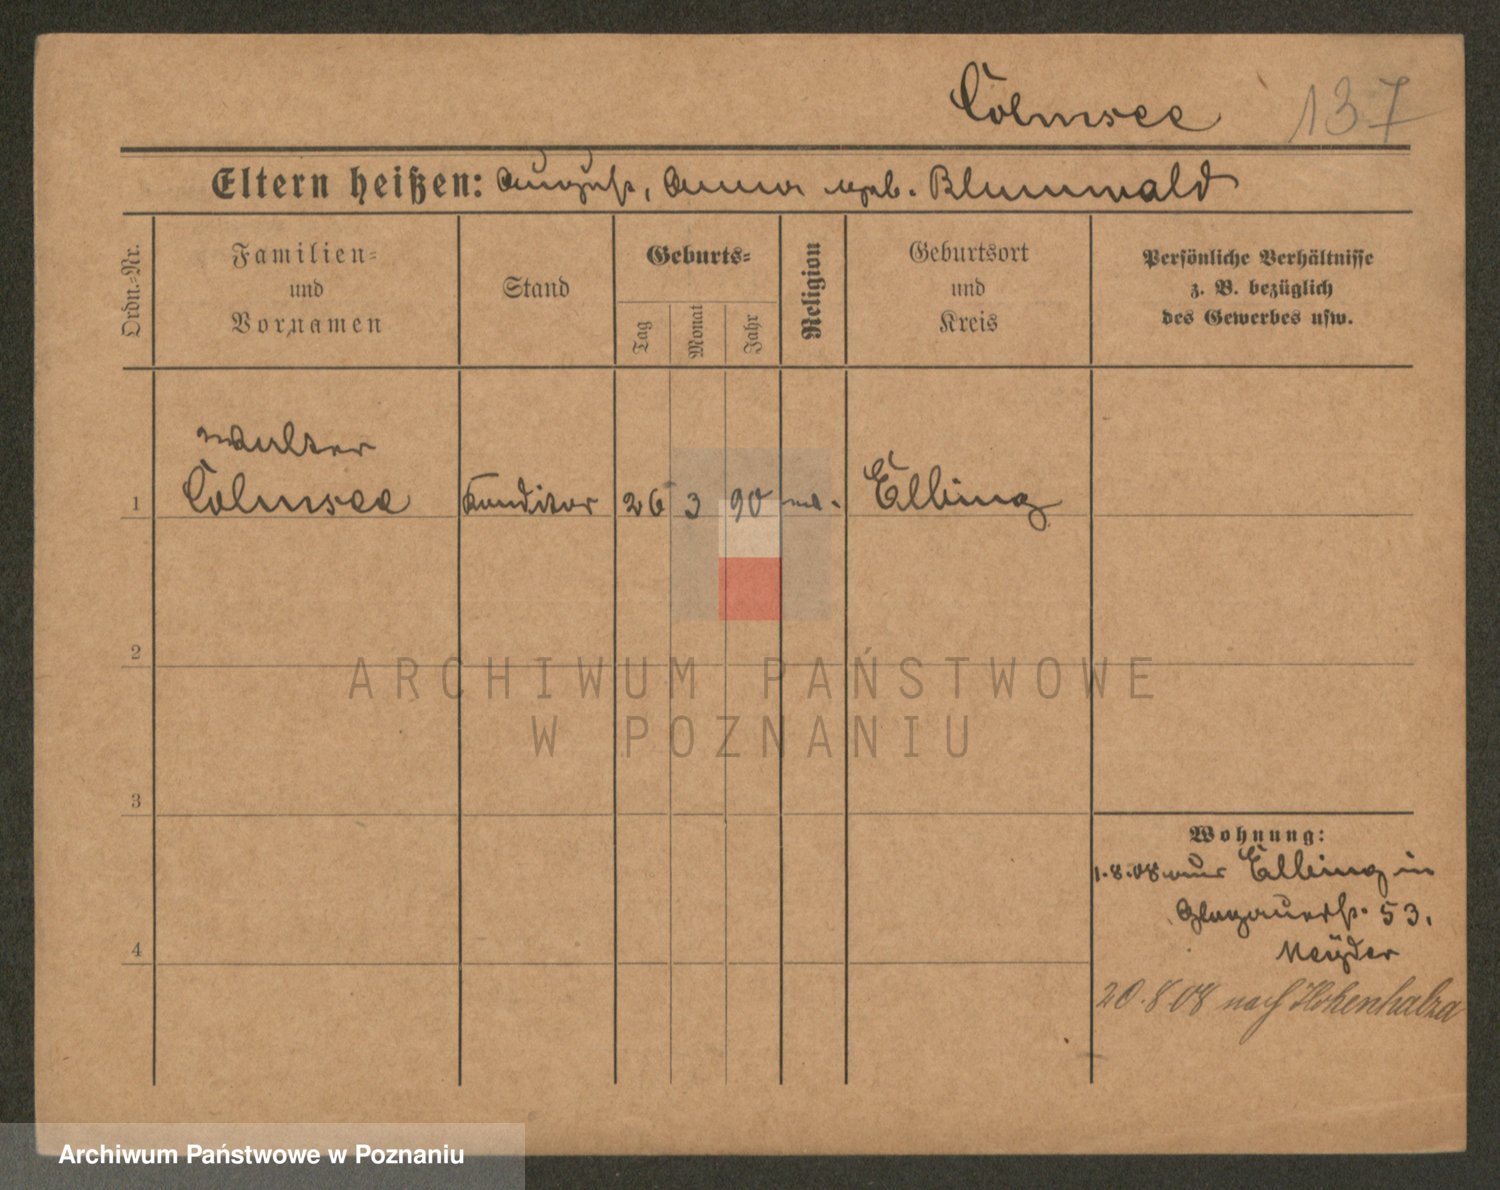 Colmsee 137
Eltern heißen: August, Anna geb. Blumwald
Ordn.-Nr.
Familien-
und
Vornamen
Stand
Geburts-
Tag
Monat
Jahr
Religion
Geburtsort
und
Kreis
Persönliche Verhältnisse
z. B. bezüglich
des Gewerbes usw.
Walter
1 Colmsee Konditor 26 3 90 Elbing
2
3
4
Wohnung:
1.8.08 Elbing in
Glogauerst. 53.
20.8.08 nach Hohenhalza
ARCHIWUM PAŃSTWOWE
W POZNANIU
Archiwum Państwowe w Poznaniu